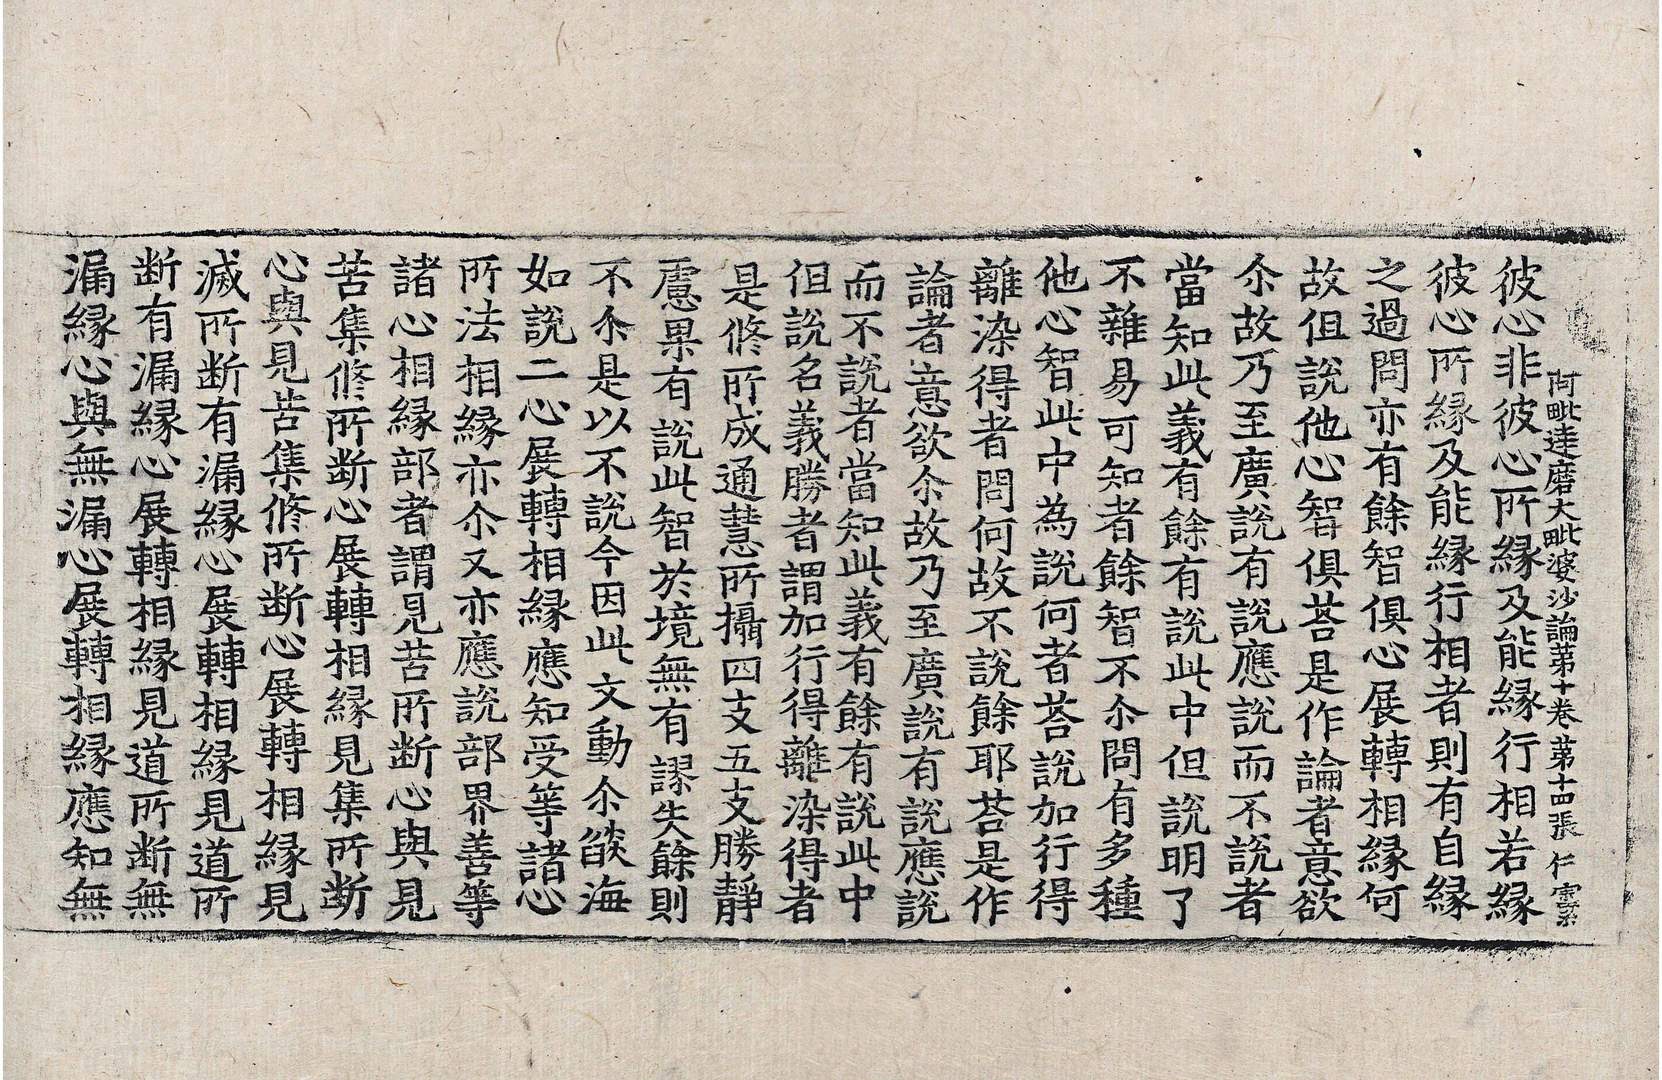 阿毗達磨大毗婆沙論苐十卷 苐十四張 仁
彼心非彼心所縁及能縁行相若縁
彼心所縁及能縁行相者則有自縁
之過問亦有餘智俱心展轉相縁何
故但說他心智俱荅是作論者意欲
尒故乃至廣說有說應說而不說者
當知此義有餘有說此中但說明了
不雜易可知者餘智不尒問有多種
他心智此中為說何者荅說加行得
離染得者問何故不說餘耶荅是作
論者意欲尒故乃至廣說有說應說
而不說者當知此義有餘有說此中
但說名義勝者謂加行得離染得者
是修所成通慧所攝四支五支勝靜
慮果有說此智於境無有謬失餘則
不尒是以不說今因此文動尒𦦨海
如說二心展轉相縁應知受等諸心
所法相縁亦尒又亦應說部界善等
諸心相縁部者謂見苦所断心與見
苦集修所断心展轉相縁見集所断
心與見苦集修所断心展轉相縁見
滅所断有漏縁心展轉相縁見道所
断有漏縁心展轉相縁見道所断無
漏縁心與無漏心展轉相縁應知無